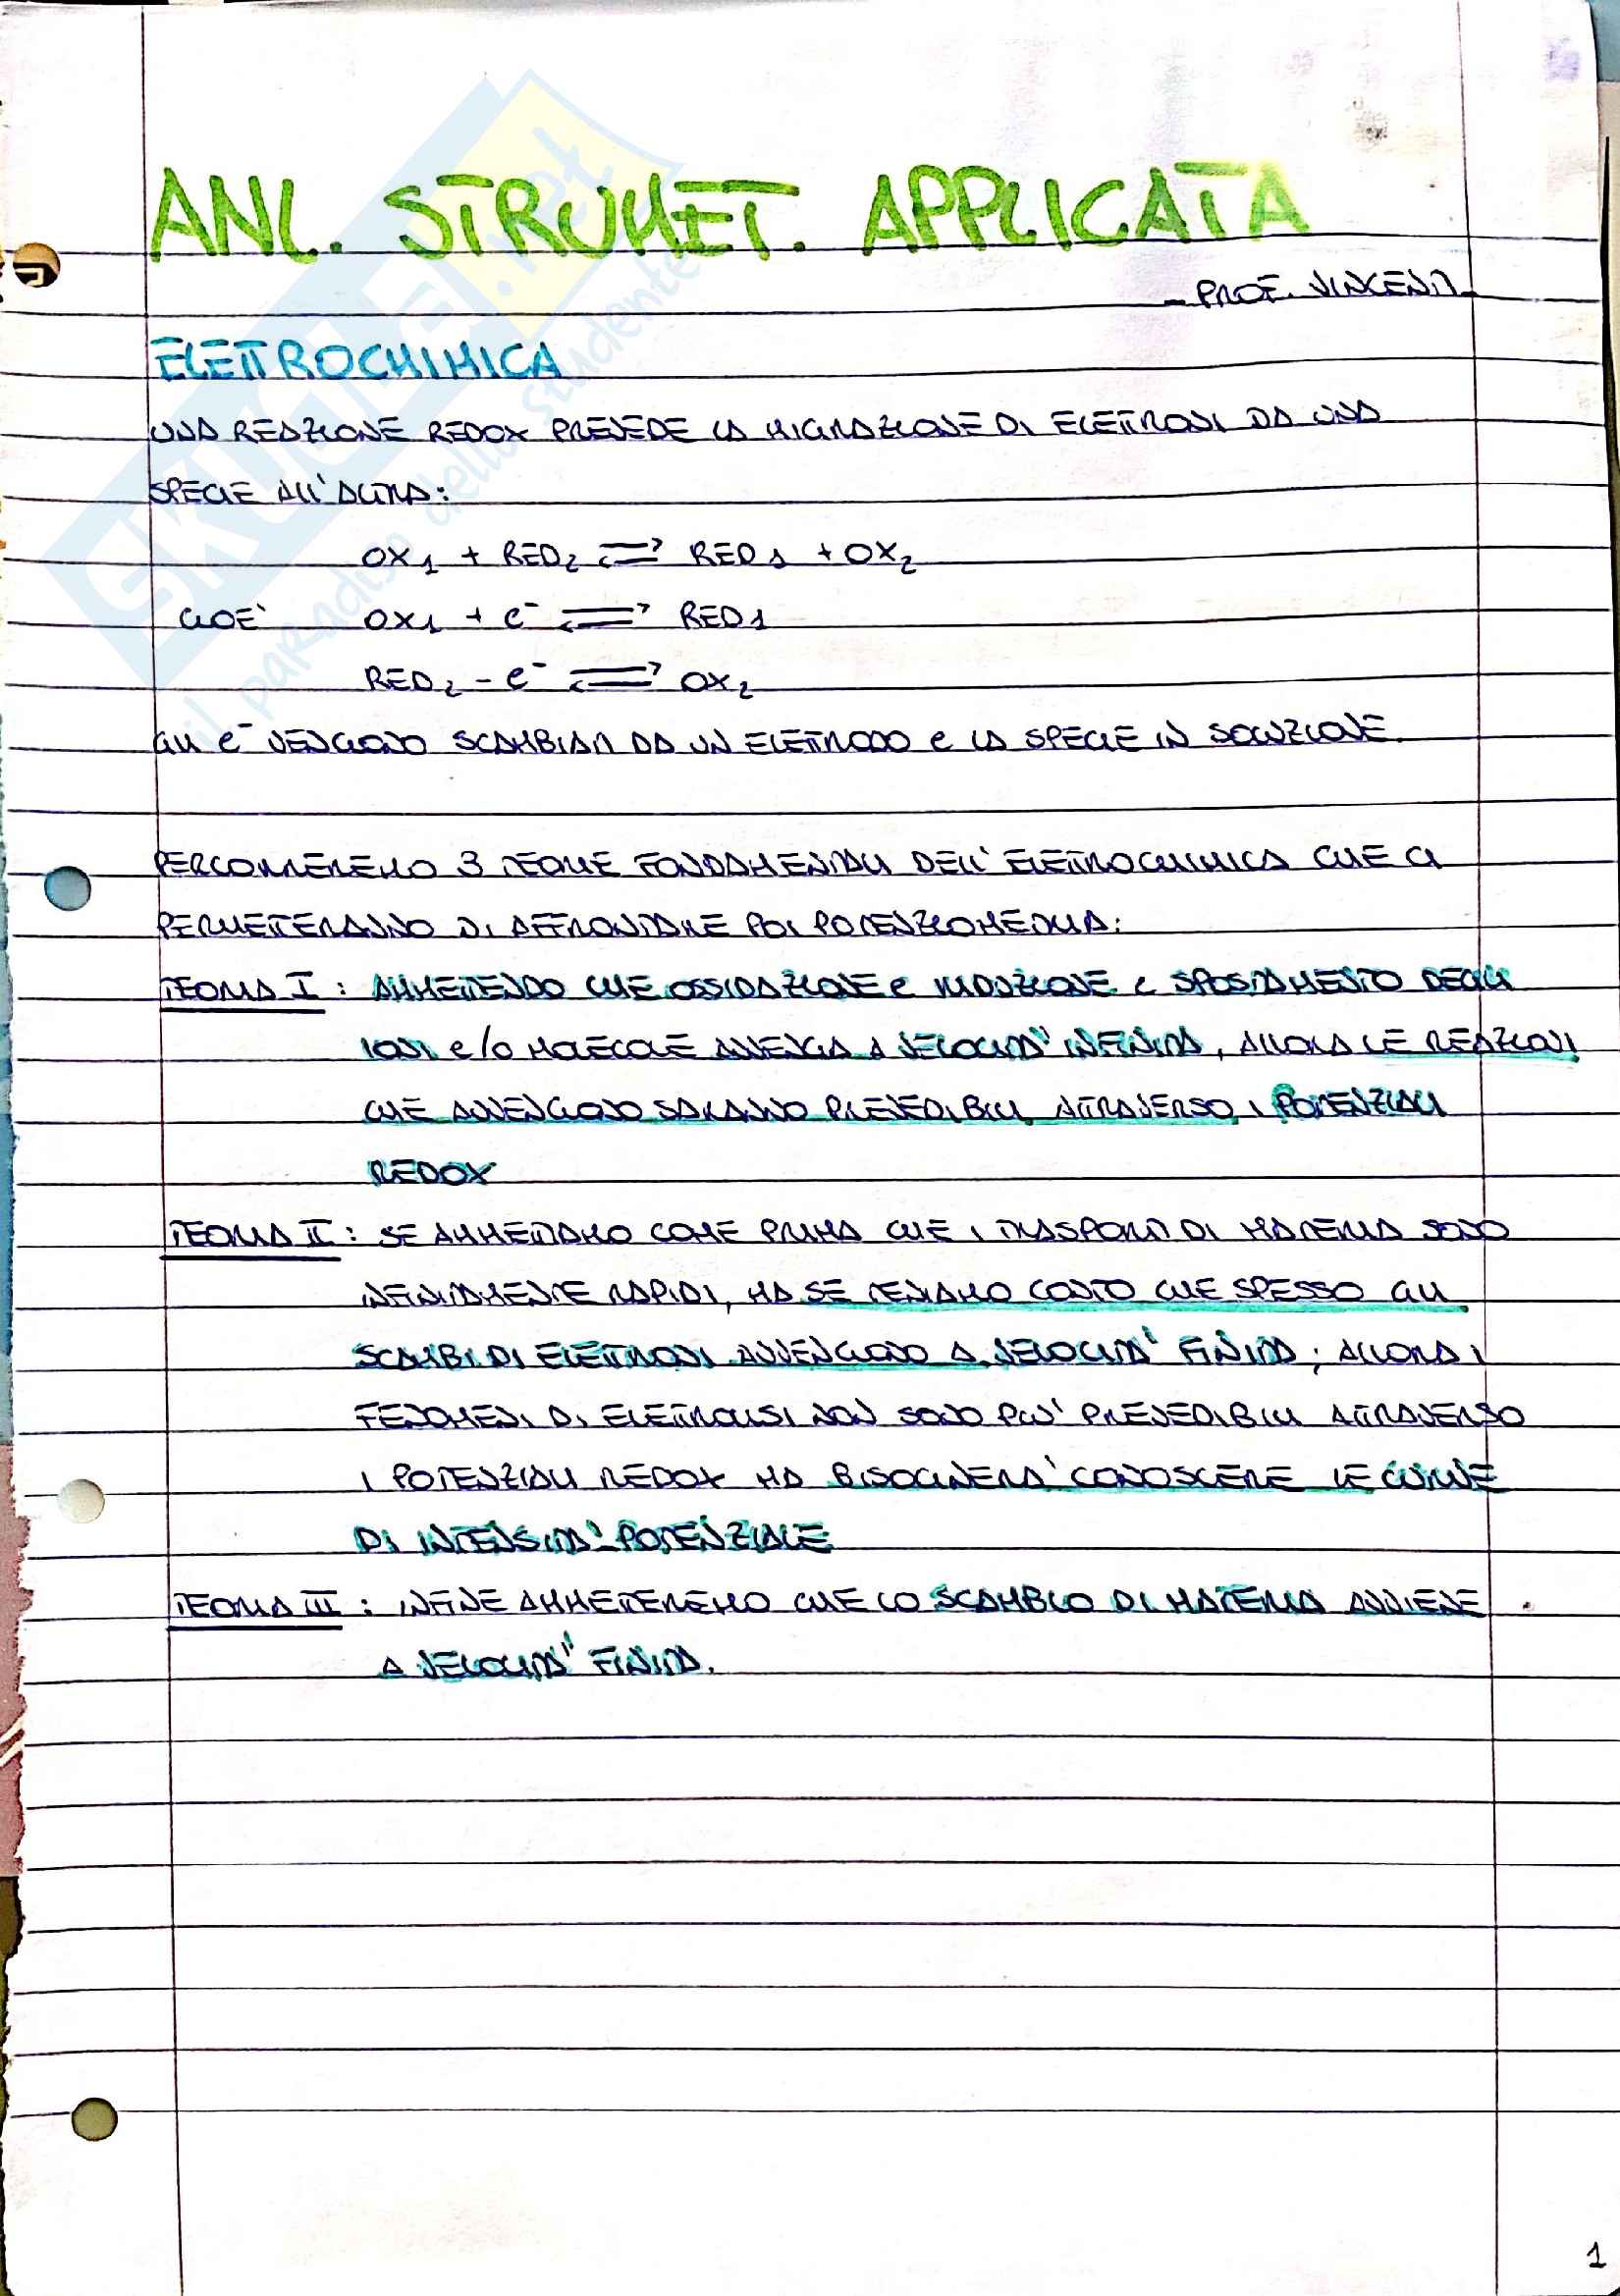 ANL. STRUMET. APPLICATA
- PROF. VINCENTI -
ELETTROCHIMICA
UNA REAZIONE REDOX PREVEDE LA MIGRAZIONE DI ELETTRONI DA UNA
SPECIE ALL'ALTRA:
OX₁ + RED₂ ⇌ RED₁ + OX₂
CIOE' OX₁ + e⁻ ⇌ RED₁
RED₂ - e⁻ ⇌ OX₂
GLI e⁻ VENGONO SCAMBIATI DA UN ELETTRODO e LA SPECIE IN SOLUZIONE.
PERCORREREMO 3 TEORIE FONDAMENTALI DELL'ELETTROCHIMICA CHE CI
PERMETTERANNO DI AFFRONTARE POI POTENZIOMETRIA:
TEORIA I : AMMETTENDO CHE OSSIDAZIONE e RIDUZIONE e SPOSTAMENTO DEGLI
IONI e/o MOLECOLE AVVENGA A VELOCITA' INFINITA, ALLORA LE REAZIONI
CHE AVVENGONO SARANNO PREVEDIBILI ATTRAVERSO I POTENZIALI
REDOX
TEORIA II : SE AMMETTIAMO COME PRIMA CHE I TRASPORTI DI MATERIA SONO
INFINITAMENTE RAPIDI, MA SE TENIAMO CONTO CHE SPESSO GLI
SCAMBI DI ELETTRONI AVVENGONO A VELOCITA' FINITA; ALLORA I
FENOMENI DI ELETTROLISI NON SONO PIU' PREVEDIBILI ATTRAVERSO
I POTENZIALI REDOX MA BISOGNERA' CONOSCERE LE CURVE
DI INTENSITA'-POTENZIALE
TEORIA III : INFINE AMMETTEREMO CHE LO SCAMBIO DI MATERIA AVVIENE
A VELOCITA' FINITA.
1
SKUOLA.net
il paradiso dello studente